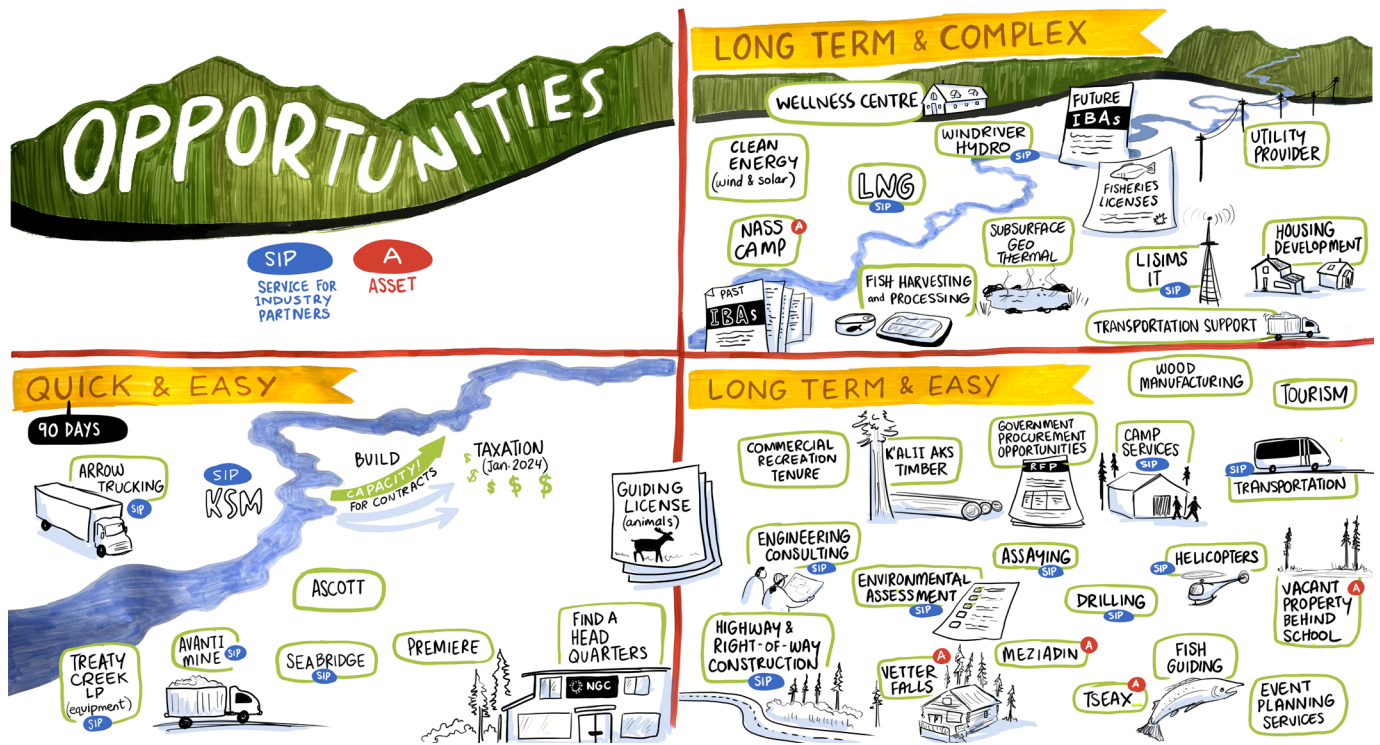 OPPORTUNITIES
SIP
SERVICE FOR
INDUSTRY
PARTNERS
A
ASSET
LONG TERM & COMPLEX
WELLNESS CENTRE
CLEAN
ENERGY
(wind & solar)
LNG
SIP
WINDRIVER
HYDRO
SIP
FUTURE
IBAs
FISHERIES
LICENSES
UTILITY
PROVIDER
NASS
CAMP
A
PAST
IBAs
FISH HARVESTING
and PROCESSING
SUBSURFACE
GEO
THERMAL
LISIMS
IT
SIP
HOUSING
DEVELOPMENT
TRANSPORTATION SUPPORT
QUICK & EASY
90 DAYS
ARROW
TRUCKING
SIP
SIP
KSM
BUILD
CAPACITY!
FOR CONTRACTS
TAXATION
(Jan. 2024)
$ $ $ $ $
ASCOTT
TREATY
CREEK
LP
(equipment)
SIP
AVANTI
MINE
SIP
SEABRIDGE
SIP
PREMIERE
FIND A
HEAD
QUARTERS
NGC
GUIDING
LICENSE
(animals)
LONG TERM & EASY
WOOD
MANUFACTURING
TOURISM
COMMERCIAL
RECREATION
TENURE
K'ALII AKS
TIMBER
GOVERNMENT
PROCUREMENT
OPPORTUNITIES
RFP
CAMP
SERVICES
SIP
SIP
TRANSPORTATION
ENGINEERING
CONSULTING
SIP
ENVIRONMENTAL
ASSESSMENT
SIP
ASSAYING
SIP
DRILLING
SIP
HELICOPTERS
SIP
VACANT
PROPERTY
BEHIND
SCHOOL
A
HIGHWAY &
RIGHT-OF-WAY
CONSTRUCTION
SIP
VETTER
FALLS
A
MEZIADIN
A
TSEAX
A
FISH
GUIDING
EVENT
PLANNING
SERVICES